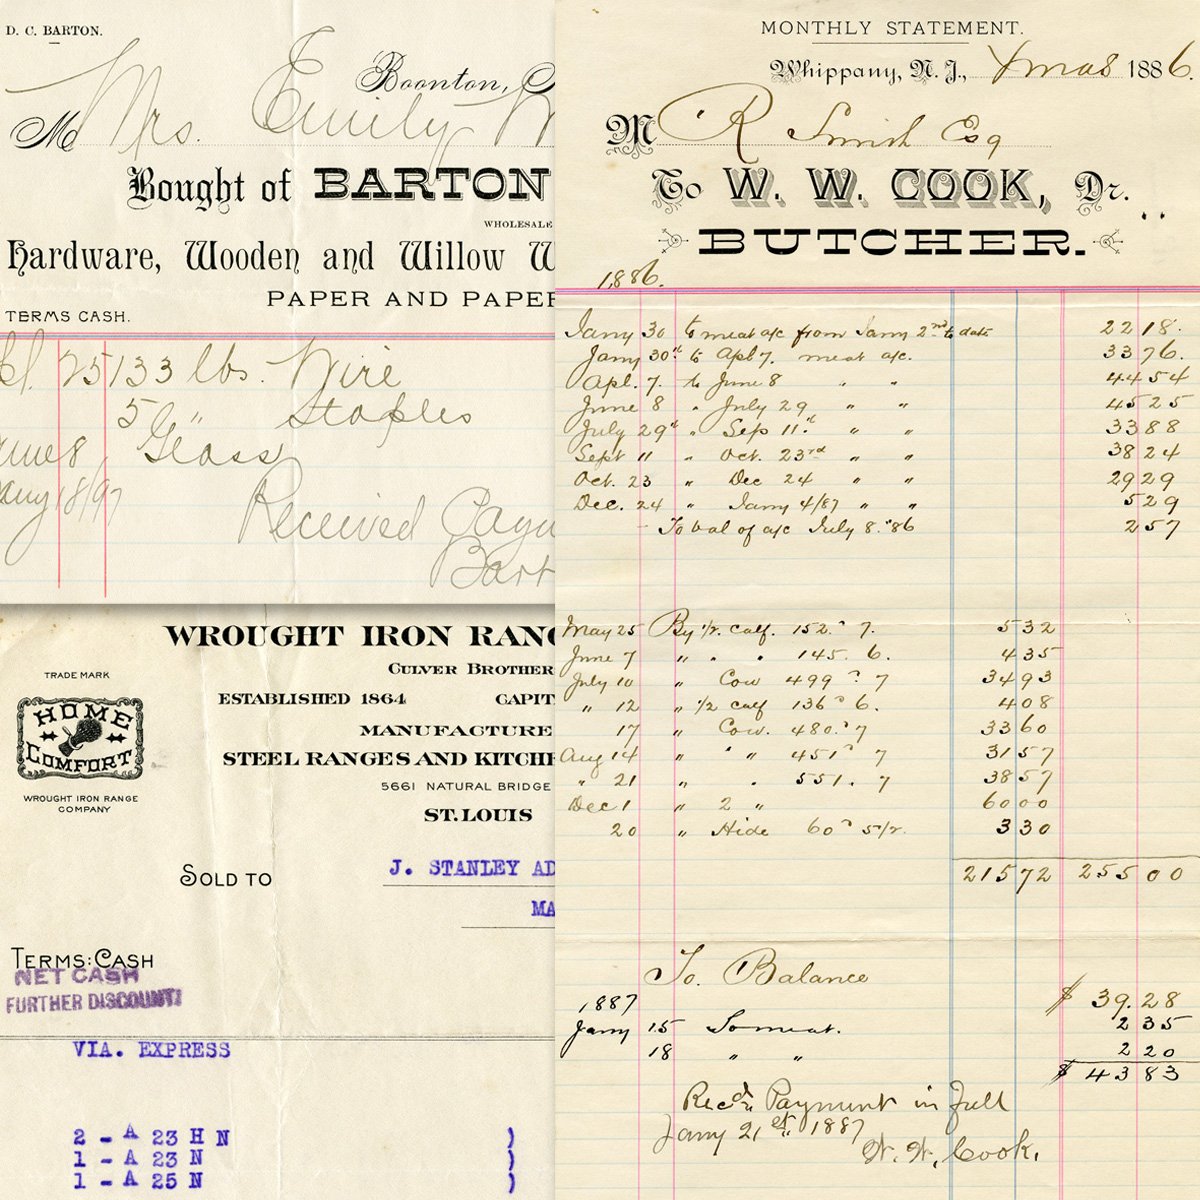 D. C. BARTON.
Boonton,
M Mrs. Emily
Bought of BARTON
WHOLESALE
Hardware, Wooden and Willow W
PAPER AND PAPER
TERMS CASH.
25 133 lbs. Wire
5 " Staples
June 8 Glass
Jany 18/97
Received Paym
Bart
WROUGHT IRON RANG
CULVER BROTHER
ESTABLISHED 1864 CAPIT
MANUFACTURE
STEEL RANGES AND KITCHE
5661 NATURAL BRIDGE
ST. LOUIS
TRADE MARK
HOME COMFORT
WROUGHT IRON RANGE
COMPANY
SOLD TO J. STANLEY AD
MA
TERMS: CASH
NET CASH
FURTHER DISCOUNT!
VIA. EXPRESS
2 - A 23 H N )
1 - A 23 N )
1 - A 25 N )
MONTHLY STATEMENT.
Whippany, N. J., Xmas 1886.
M R Smith Esq
To W. W. COOK, Dr.
BUTCHER.
1886.
Jany 30 to meat a/c from Jany 2nd to date 22 18.
Jany 30th to Apl 7. meat a/c. 33 76.
Apl. 7. to June 8 " " 44 54
June 8 " July 29 " " 45 25
July 29th " Sep 11th " " 33 88
Sept 11 " Oct. 23rd " " 38 24
Oct. 23 " Dec 24 " " 29 29
Dec. 24 " Jany 4/87 " " 5 29
To bal of a/c July 8. '86 2 57
May 25 By 1/2 calf. 152. 7. 5 32
June 7 " " " 145. 6. 4 35
July 10 " Cow 499 7 34 93
" 12 " 1/2 calf 136 6. 4 08
17 " Cow. 480. 7 33 60
Aug 14 " " " 451 7 31 57
" 21 " " 551. 7 38 57
Dec 1 " 2 " 60 00
20 " Hide 60 5/2. 3 30
215 72 255 00
To. Balance
1887 $ 39.28
Jany 15 To meat. 2 35
18 " " 2 20
$ 43 83
Recd Payment in full
Jany 21st 1887
W. W. Cook.